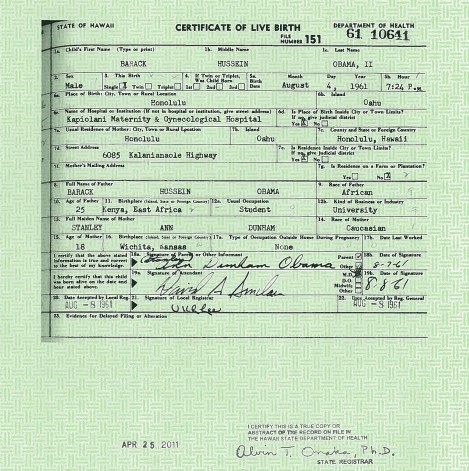 STATE OF HAWAII CERTIFICATE OF LIVE BIRTH DEPARTMENT OF HEALTH
FILE NUMBER 151 61 10641
1a. Child's First Name (Type or print) 1b. Middle Name 1c. Last Name
BARACK HUSSEIN OBAMA, II
2. Sex 3. This Birth 4. If Twin or Triplet, Was Child Born 5a. Birth Date Month Day Year 5b. Hour
Male Single X Twin Triplet 1st 2nd 3rd August 4, 1961 7:24 P.M.
6a. Place of Birth: City, Town or Rural Location 6b. Island
Honolulu Oahu
6c. Name of Hospital or Institution (If not in hospital or institution, give street address) 6d. Is Place of Birth Inside City or Town Limits? If no, give judicial district
Kapiolani Maternity & Gynecological Hospital Yes X No
7a. Usual Residence of Mother: City, Town or Rural Location 7b. Island 7c. County and State or Foreign Country
Honolulu Oahu Honolulu, Hawaii
7d. Street Address 7e. Is Residence Inside City or Town Limits? If no, give judicial district
6085 Kalanianaole Highway Yes X No
7f. Mother's Mailing Address 7g. Is Residence on a Farm or Plantation?
Yes No X
8. Full Name of Father 9. Race of Father
BARACK HUSSEIN OBAMA African
10. Age of Father 11. Birthplace (Island, State or Foreign Country) 12a. Usual Occupation 12b. Kind of Business or Industry
25 Kenya, East Africa Student University
13. Full Maiden Name of Mother 14. Race of Mother
STANLEY ANN DUNHAM Caucasian
15. Age of Mother 16. Birthplace (Island, State or Foreign Country) 17a. Type of Occupation Outside Home During Pregnancy 17b. Date Last Worked
18 Wichita, Kansas None
I certify that the above stated information is true and correct to the best of my knowledge. 18a. Signature of Parent or Other Informant Parent Other 18b. Date of Signature
Ann Dunham Obama 8-7-61
I hereby certify that this child was born alive on the date and hour stated above. 19a. Signature of Attendant M.D. D.O. Midwife Other 19b. Date of Signature
David A Sinclair 8-8-61
20. Date Accepted by Local Reg. 21. Signature of Local Registrar 22. Date Accepted by Reg. General
AUG -8 1961 AUG -8 1961
23. Evidence for Delayed Filing or Alteration
APR 25 2011
I CERTIFY THIS IS A TRUE COPY OR
ABSTRACT OF THE RECORD ON FILE IN
THE HAWAII STATE DEPARTMENT OF HEALTH
Alvin T. Onaka, Ph.D.
STATE REGISTRAR